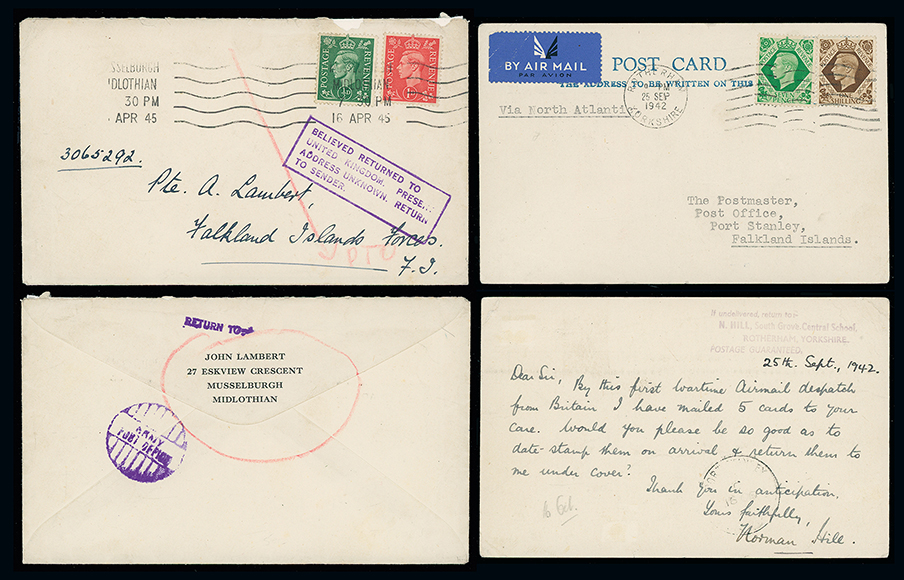 SSELBURGH
DLOTHIAN
30 PM
APR 45
POSTAGE REVENUE
POSTAGE REVENUE
30 PM
16 APR 45
3065292.
BELIEVED RETURNED TO
UNITED KINGDOM. PRESE
ADDRESS UNKNOWN. RETURN
TO SENDER.
Pte. A. Lambert,
Falkland Islands Forces.
F.I.
PTO
BY AIR MAIL
PAR AVION
POST CARD
THE ADDRESS TO BE WRITTEN ON THIS
Via North Atlanti
ROTHERHAM
25 SEP
1942
YORKSHIRE
SEVEN PENCE
ONE SHILLING
The Postmaster,
Post Office,
Port Stanley,
Falkland Islands.
RETURN TO
JOHN LAMBERT
27 ESKVIEW CRESCENT
MUSSELBURGH
MIDLOTHIAN
ARMY
POST OFFICE
If undelivered, return to:-
N. HILL, South Grove, Central School,
ROTHERHAM, YORKSHIRE.
POSTAGE GUARANTEED.
25th. Sept., 1942.
Dear Sir, By this first wartime Airmail despatch
from Britain I have mailed 5 cards to your
care. Would you please be so good as to
date-stamp them on arrival & return them to
me under cover?
Thank you in anticipation,
Yours faithfully,
Norman Hill.
16 Oct.